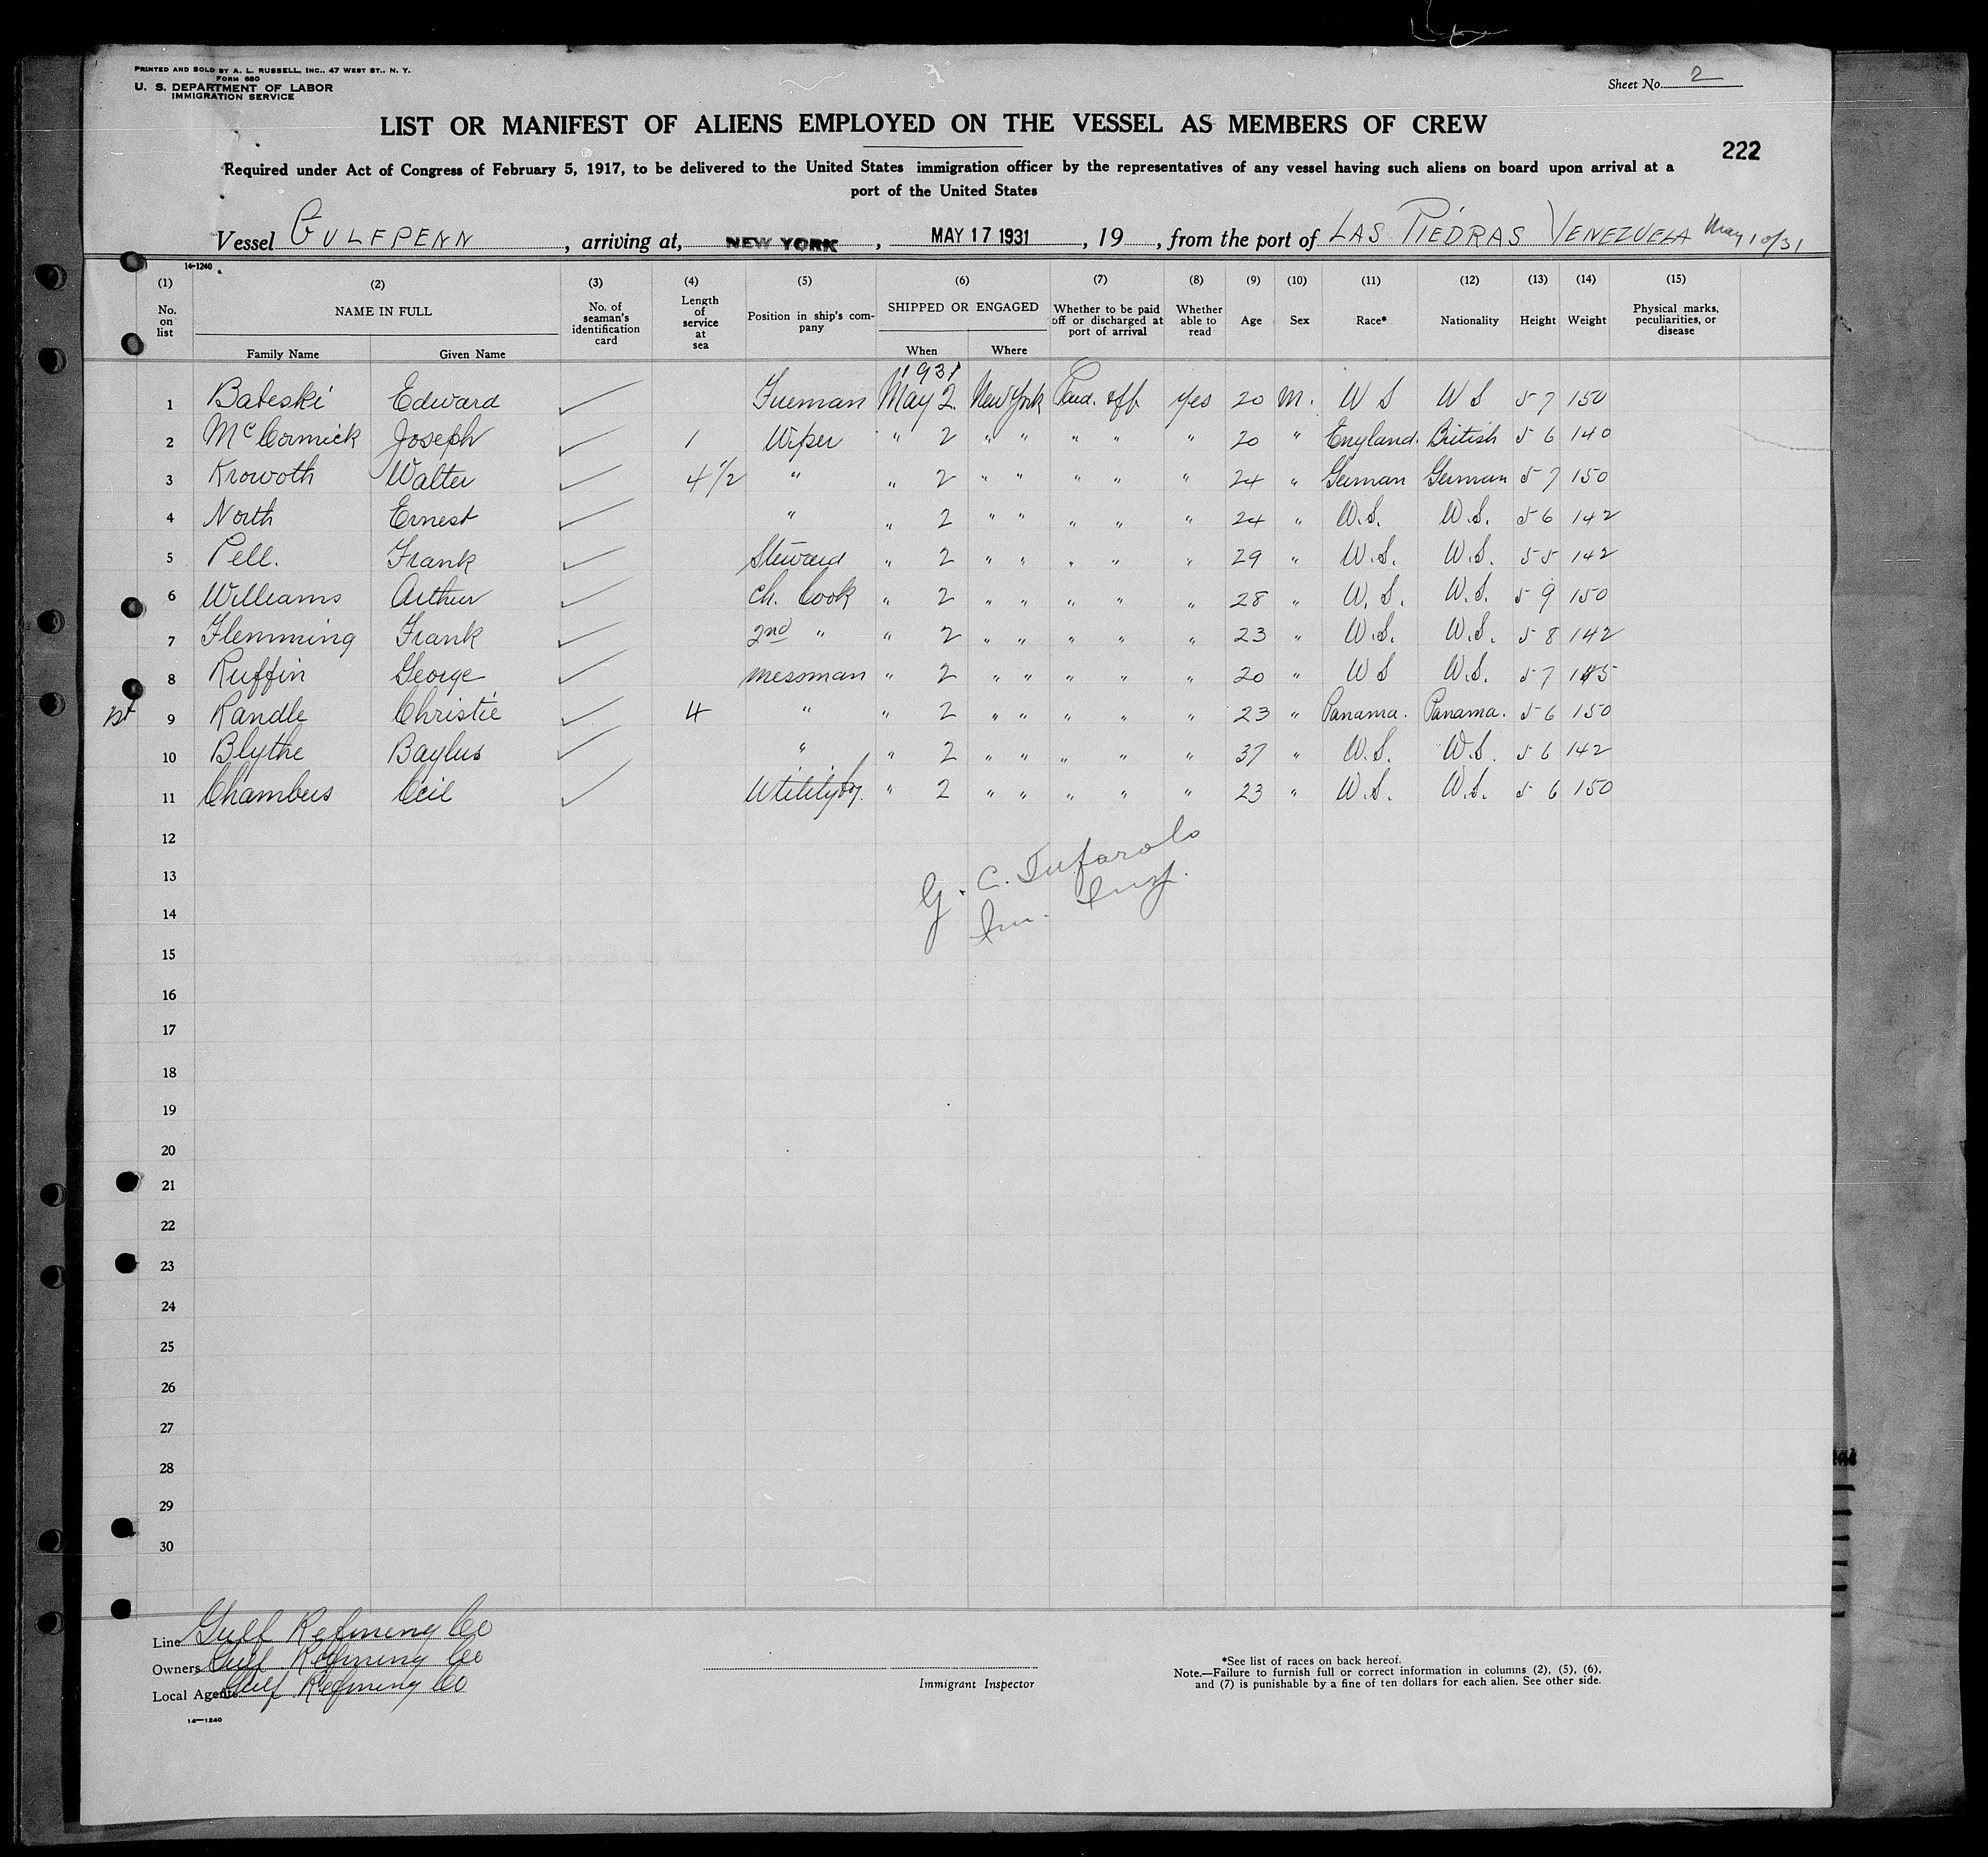 PRINTED AND SOLD BY A. L. RUSSELL, INC., 47 WEST ST., N. Y.
FORM 680
U. S. DEPARTMENT OF LABOR
IMMIGRATION SERVICE
Sheet No. 2
LIST OR MANIFEST OF ALIENS EMPLOYED ON THE VESSEL AS MEMBERS OF CREW
222
Required under Act of Congress of February 5, 1917, to be delivered to the United States immigration officer by the representatives of any vessel having such aliens on board upon arrival at a
port of the United States
Vessel GULFPENN, arriving at, NEW YORK, MAY 17 1931, 19, from the port of LAS PIEDRAS VENEZUELA May 10/31
14-1240
(1) (2) (3) (4) (5) (6) (7) (8) (9) (10) (11) (12) (13) (14) (15)
No. on list NAME IN FULL No. of seaman's identification card Length of service at sea Position in ship's company SHIPPED OR ENGAGED Whether to be paid off or discharged at port of arrival Whether able to read Age Sex Race* Nationality Height Weight Physical marks, peculiarities, or disease
Family Name Given Name When Where
1931
1 Bateski Edward Fireman May 2 New York Paid off Yes 20 M. U S U S 5 7 150
2 McCormick Joseph 1 Wiper " 2 " " " " " 20 " England. British 5 6 140
3 Krowoth Walter 4 1/2 " " 2 " " " " " 24 " German German 5 7 150
4 North Ernest " " 2 " " " " " 24 " U.S. U.S. 5 6 142
5 Pell. Frank Steward " 2 " " " " " 29 " U.S. U.S. 5 5 142
6 Williams Arthur Ch. Cook " 2 " " " " " 28 " U.S. U.S. 5 9 150
7 Flemming Frank 2nd " " 2 " " " " " 23 " U.S. U.S. 5 8 142
8 Ruffin George messman " 2 " " " " " 20 " U S U.S. 5 7 145
9 Randle Christie 4 " " 2 " " " " " 23 " Panama. Panama. 5 6 150
10 Blythe Baylus " " 2 " " " " " 37 " U.S. U.S. 5 6 142
11 Chambers Ceil Utilityboy. " 2 " " " " " 23 " U.S. U.S. 5 6 150
12
13
14
G. C. Tufarolo
Im. Insp.
15
16
17
18
19
20
21
22
23
24
25
26
27
28
29
30
Line Gulf Refining Co
Owners Gulf Refining Co
Local Agents Gulf Refining Co
14-1240
Immigrant Inspector
*See list of races on back hereof.
Note.—Failure to furnish full or correct information in columns (2), (5), (6),
and (7) is punishable by a fine of ten dollars for each alien. See other side.